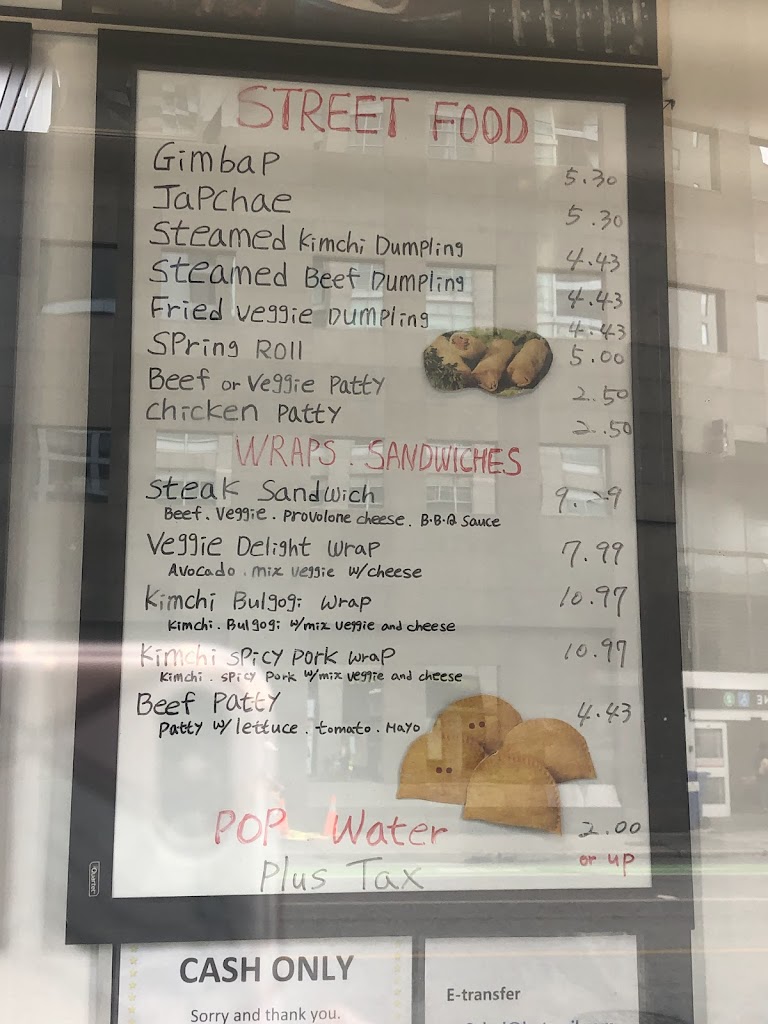 STREET FOOD
Gimbap 5.30
Japchae 5.30
Steamed Kimchi Dumpling 4.43
Steamed Beef Dumpling 4.43
Fried Veggie Dumpling 4.43
Spring Roll 5.00
Beef or Veggie Patty 2.50
Chicken Patty 2.50
WRAPS . SANDWICHES
Steak Sandwich 9.29
Beef . Veggie . Provolone cheese . B.B.Q Sauce
Veggie Delight Wrap 7.99
Avocado . mix veggie w/cheese
Kimchi Bulgogi Wrap 10.97
Kimchi . Bulgogi w/mix veggie and cheese
Kimchi Spicy Pork Wrap 10.97
Kimchi . Spicy Pork w/mix veggie and cheese
Beef Patty 4.43
Patty w/ lettuce . tomato . Mayo
POP . Water 2.00
or up
Plus Tax
Quartet
CASH ONLY
Sorry and thank you.
E-transfer